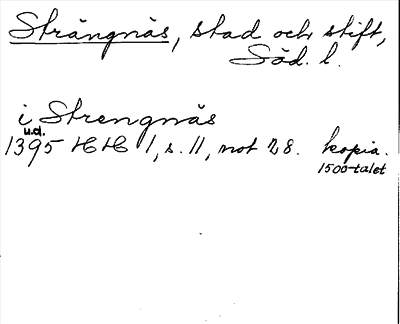 Strängnäs, stad och stift,
Söd. l.
i Strengnäs
u.d.
1395 HH 1, s. 11, not 28. kopia.
1500-talet